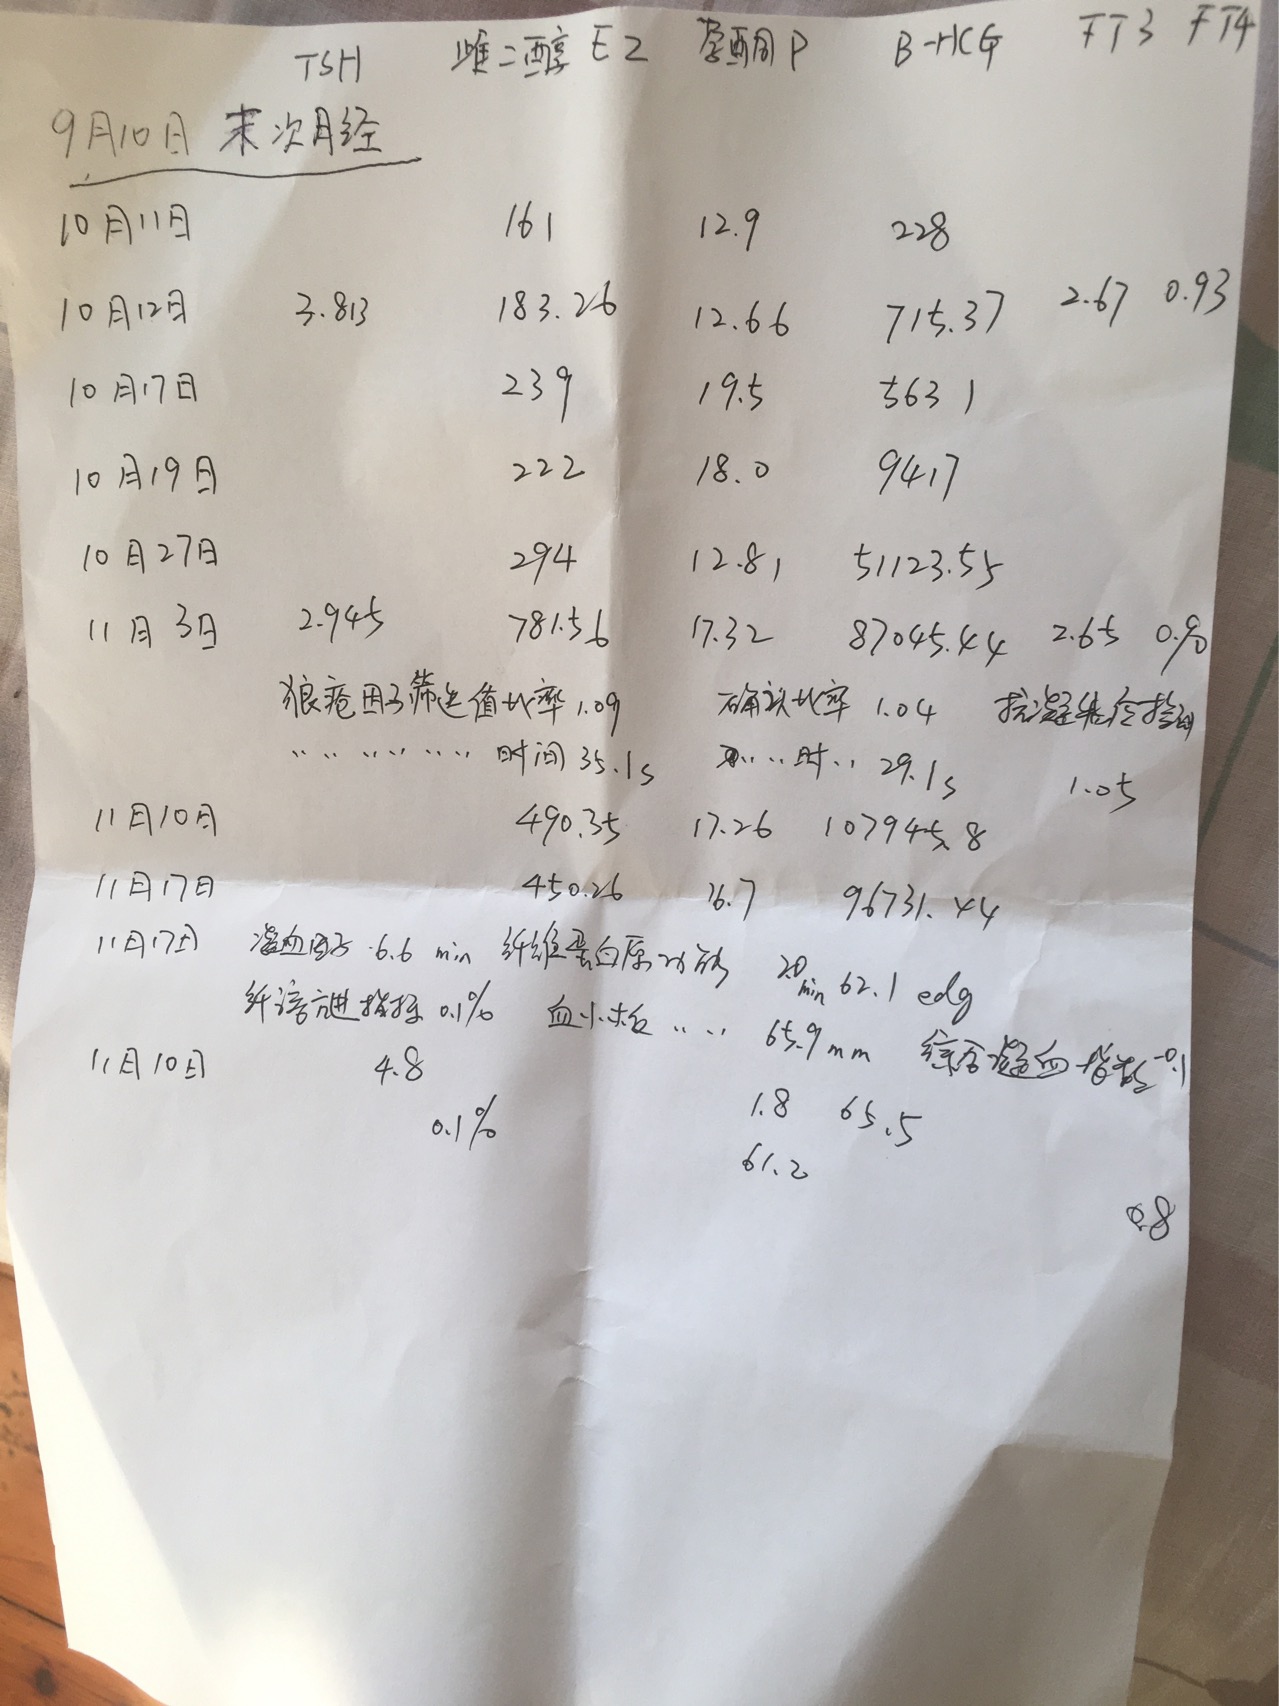 TSH 雌二醇 E2 孕酮 P B-HCG FT3 FT4
9月10日 末次月经
10月11日 161 12.9 228
10月12日 3.813 183.26 12.66 715.37 2.67 0.93
10月17日 239 19.5 5631
10月19日 222 18.0 9417
10月27日 294 12.81 51123.55
11月3日 2.945 781.56 17.32 87045.44 2.65 0.90
狼疮因子筛选值比率 1.09 确认比率 1.04 抗凝
〃 〃 〃 〃 〃 〃 时间 35.1s 〃 〃 时 〃 29.1s 1.05
11月10日 490.35 17.26 107945.8
11月17日 450.26 16.7 96731.44
11月17日 凝血因子 6.6 min 纤维蛋白原功能 2.0 min 62.1 edg
纤溶亢进指标 0.1% 血小板 〃 〃 65.9mm 综合凝血指数 -0.1
11月10日 4.8
1.8 65.5
0.1%
61.2
0.8